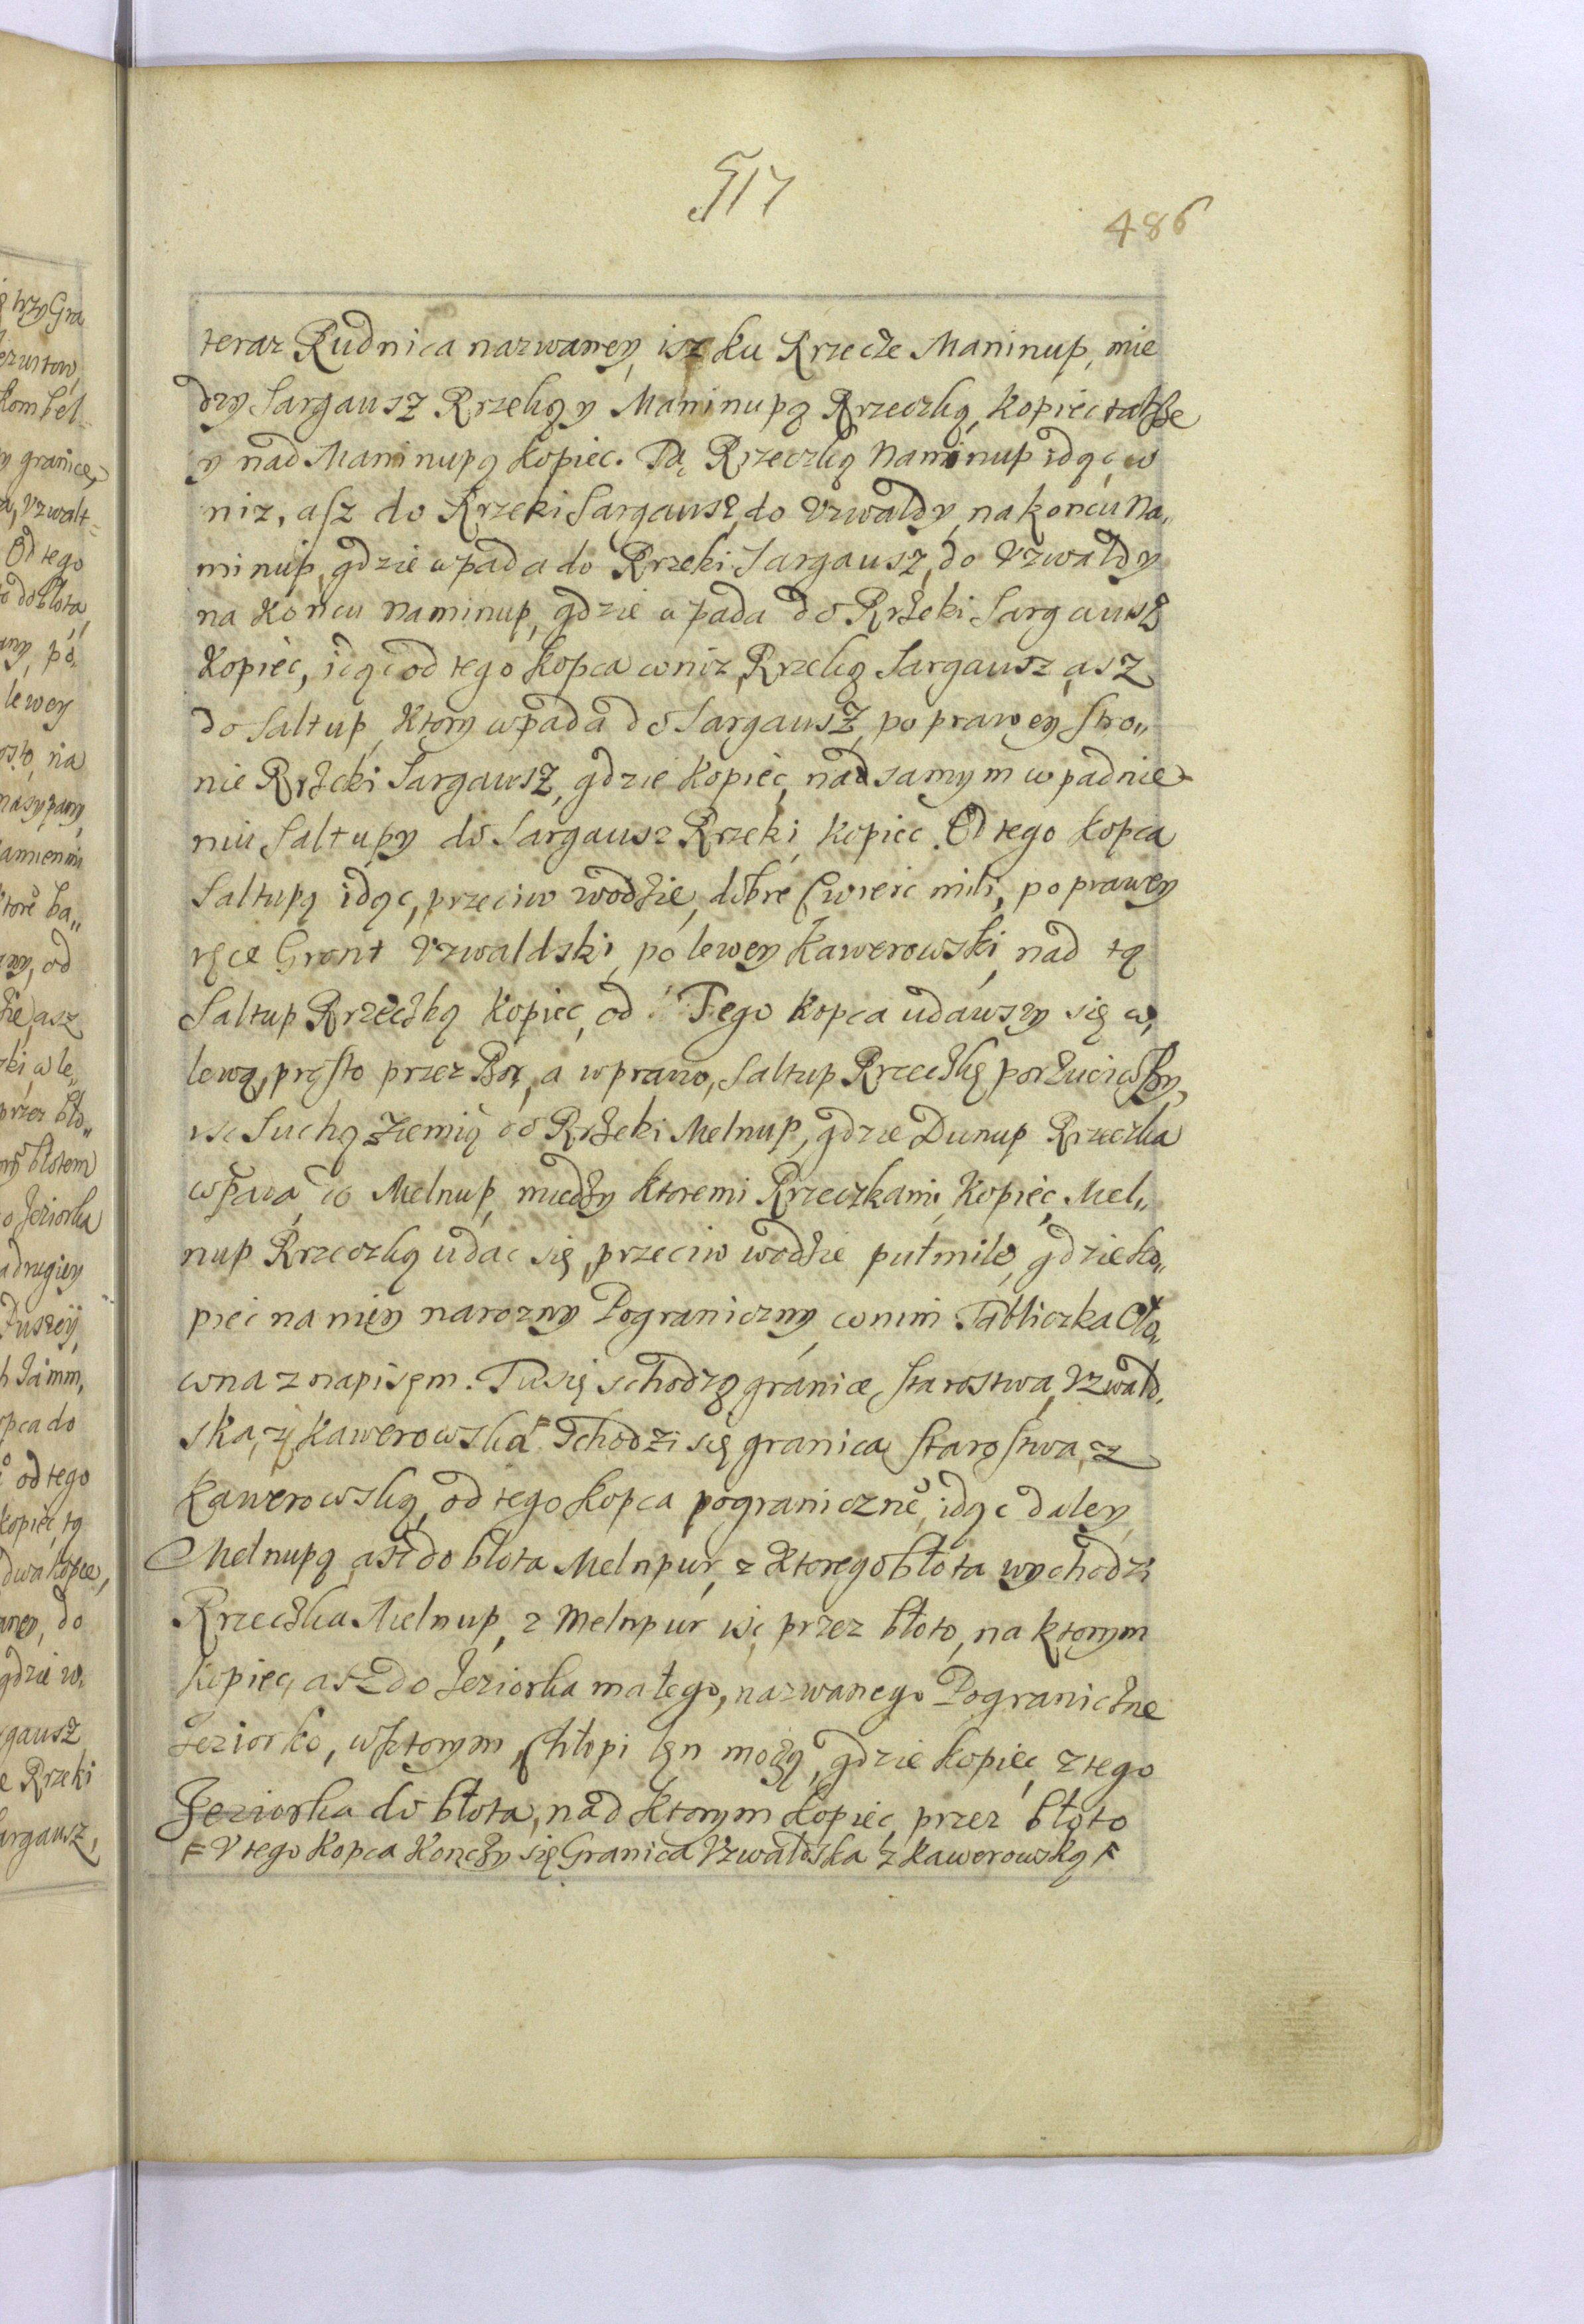 517
486
teraz Rudnica nazwaney, isz ku Rzecze Maninup, mie
dzy Sargausz Rrzeką y Maninupą Rrzeczką, kopiec takze
y nad Maninupą kopiec. Tą Rrzeczką Naminup idąc w
niz, asz do Rrzeki Sargausz, do Vzwaldy, na koncu Na„
minup, gdzie wpada do Rrzeki Sargausz, do Vzwaldy
na Koncu Naminup, gdzie wpada do Rrżeki Sargausz
Kopiec, idąc od tego kopca wniz, Rrzeką Sargausz, asz
do Saltup, Ktory wpada do Sargausz, po prawey stro„
nie Rrżeki Sargausz, gdzie kopiec, nad samym wpadnie-
niu Saltupy do Sargausz Rrzeki, kopiec. Od tego kopca
Saltupą idąc, przeciw wodzie, dobre cwierc mili, po prawey
ręce Gront Vzwaldski, po lewey Kawerowski, nad tą
Saltup Rrzeczką kopiec, od Tego kopca udawszy się w,
lewą, prosto przez Bor, a wprawo, Saltup Rrzeczkę porzuciwszy,
isc Suchą Ziemią do Rrżeki Melnup, gdzie Dunup Rrzeczka
wpada do Melnup, miedzy ktoremi Rrzeczkami, Kopiec, Mel„
nup Rrzeczką udac się, przeciw wodzie pułmile, gdzie ko„
piec na niey narozny Pograniczny, w nim Tabliczka Oło„
wna z napisęm. Tu się schodzą granice, starostwa, Vzwald„
ska, y Kawerowska F Schodzi się granica starostwa, z
Kawerowską, od tego kopca pograniczne, idąc daley
Melnupą asz do błota Melnpur, z Ktorego błota wychodzi
Rrzeczka Melnup, z Melnpur isc przez błoto, na ktorym
kopiec, asz do Jeziorka małego, nazwanego Pograniczne
Jeziorko, w ktorym, Chłopi lęn moczą, gdzie kopiec, z tego
Jeziorka do błota, nad Ktorym kopiec, przez błoto
F V tego kopca Konczy się Granica Vzwaldska z Kawerowską F